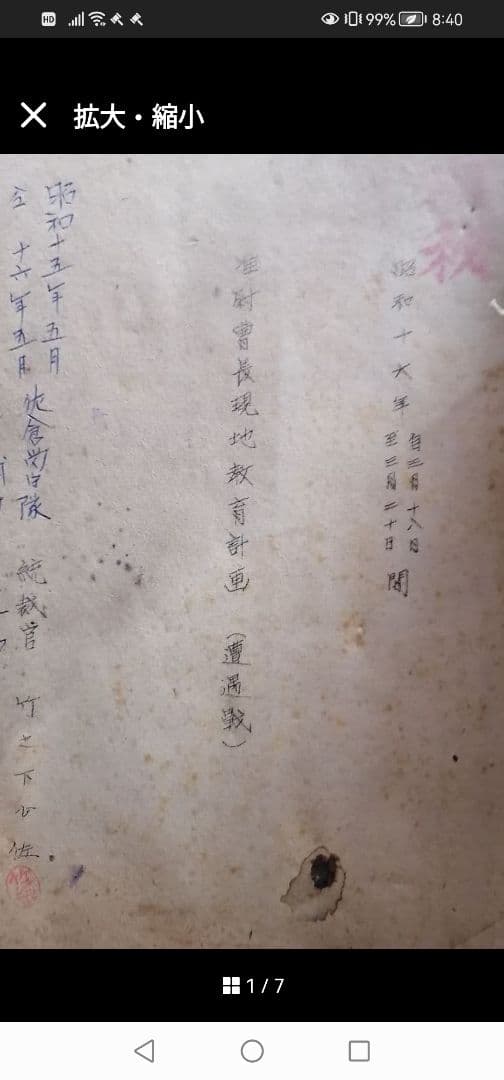 HD
99%
8:40
拡大・縮小
秘
昭和十六年
自三月十八日
至三月二十日
間
准尉曹長現地教育計画（遭遇戦）
昭和十五年五月
仝 十六年五月
隊 統裁官 竹之下少佐
1 / 7